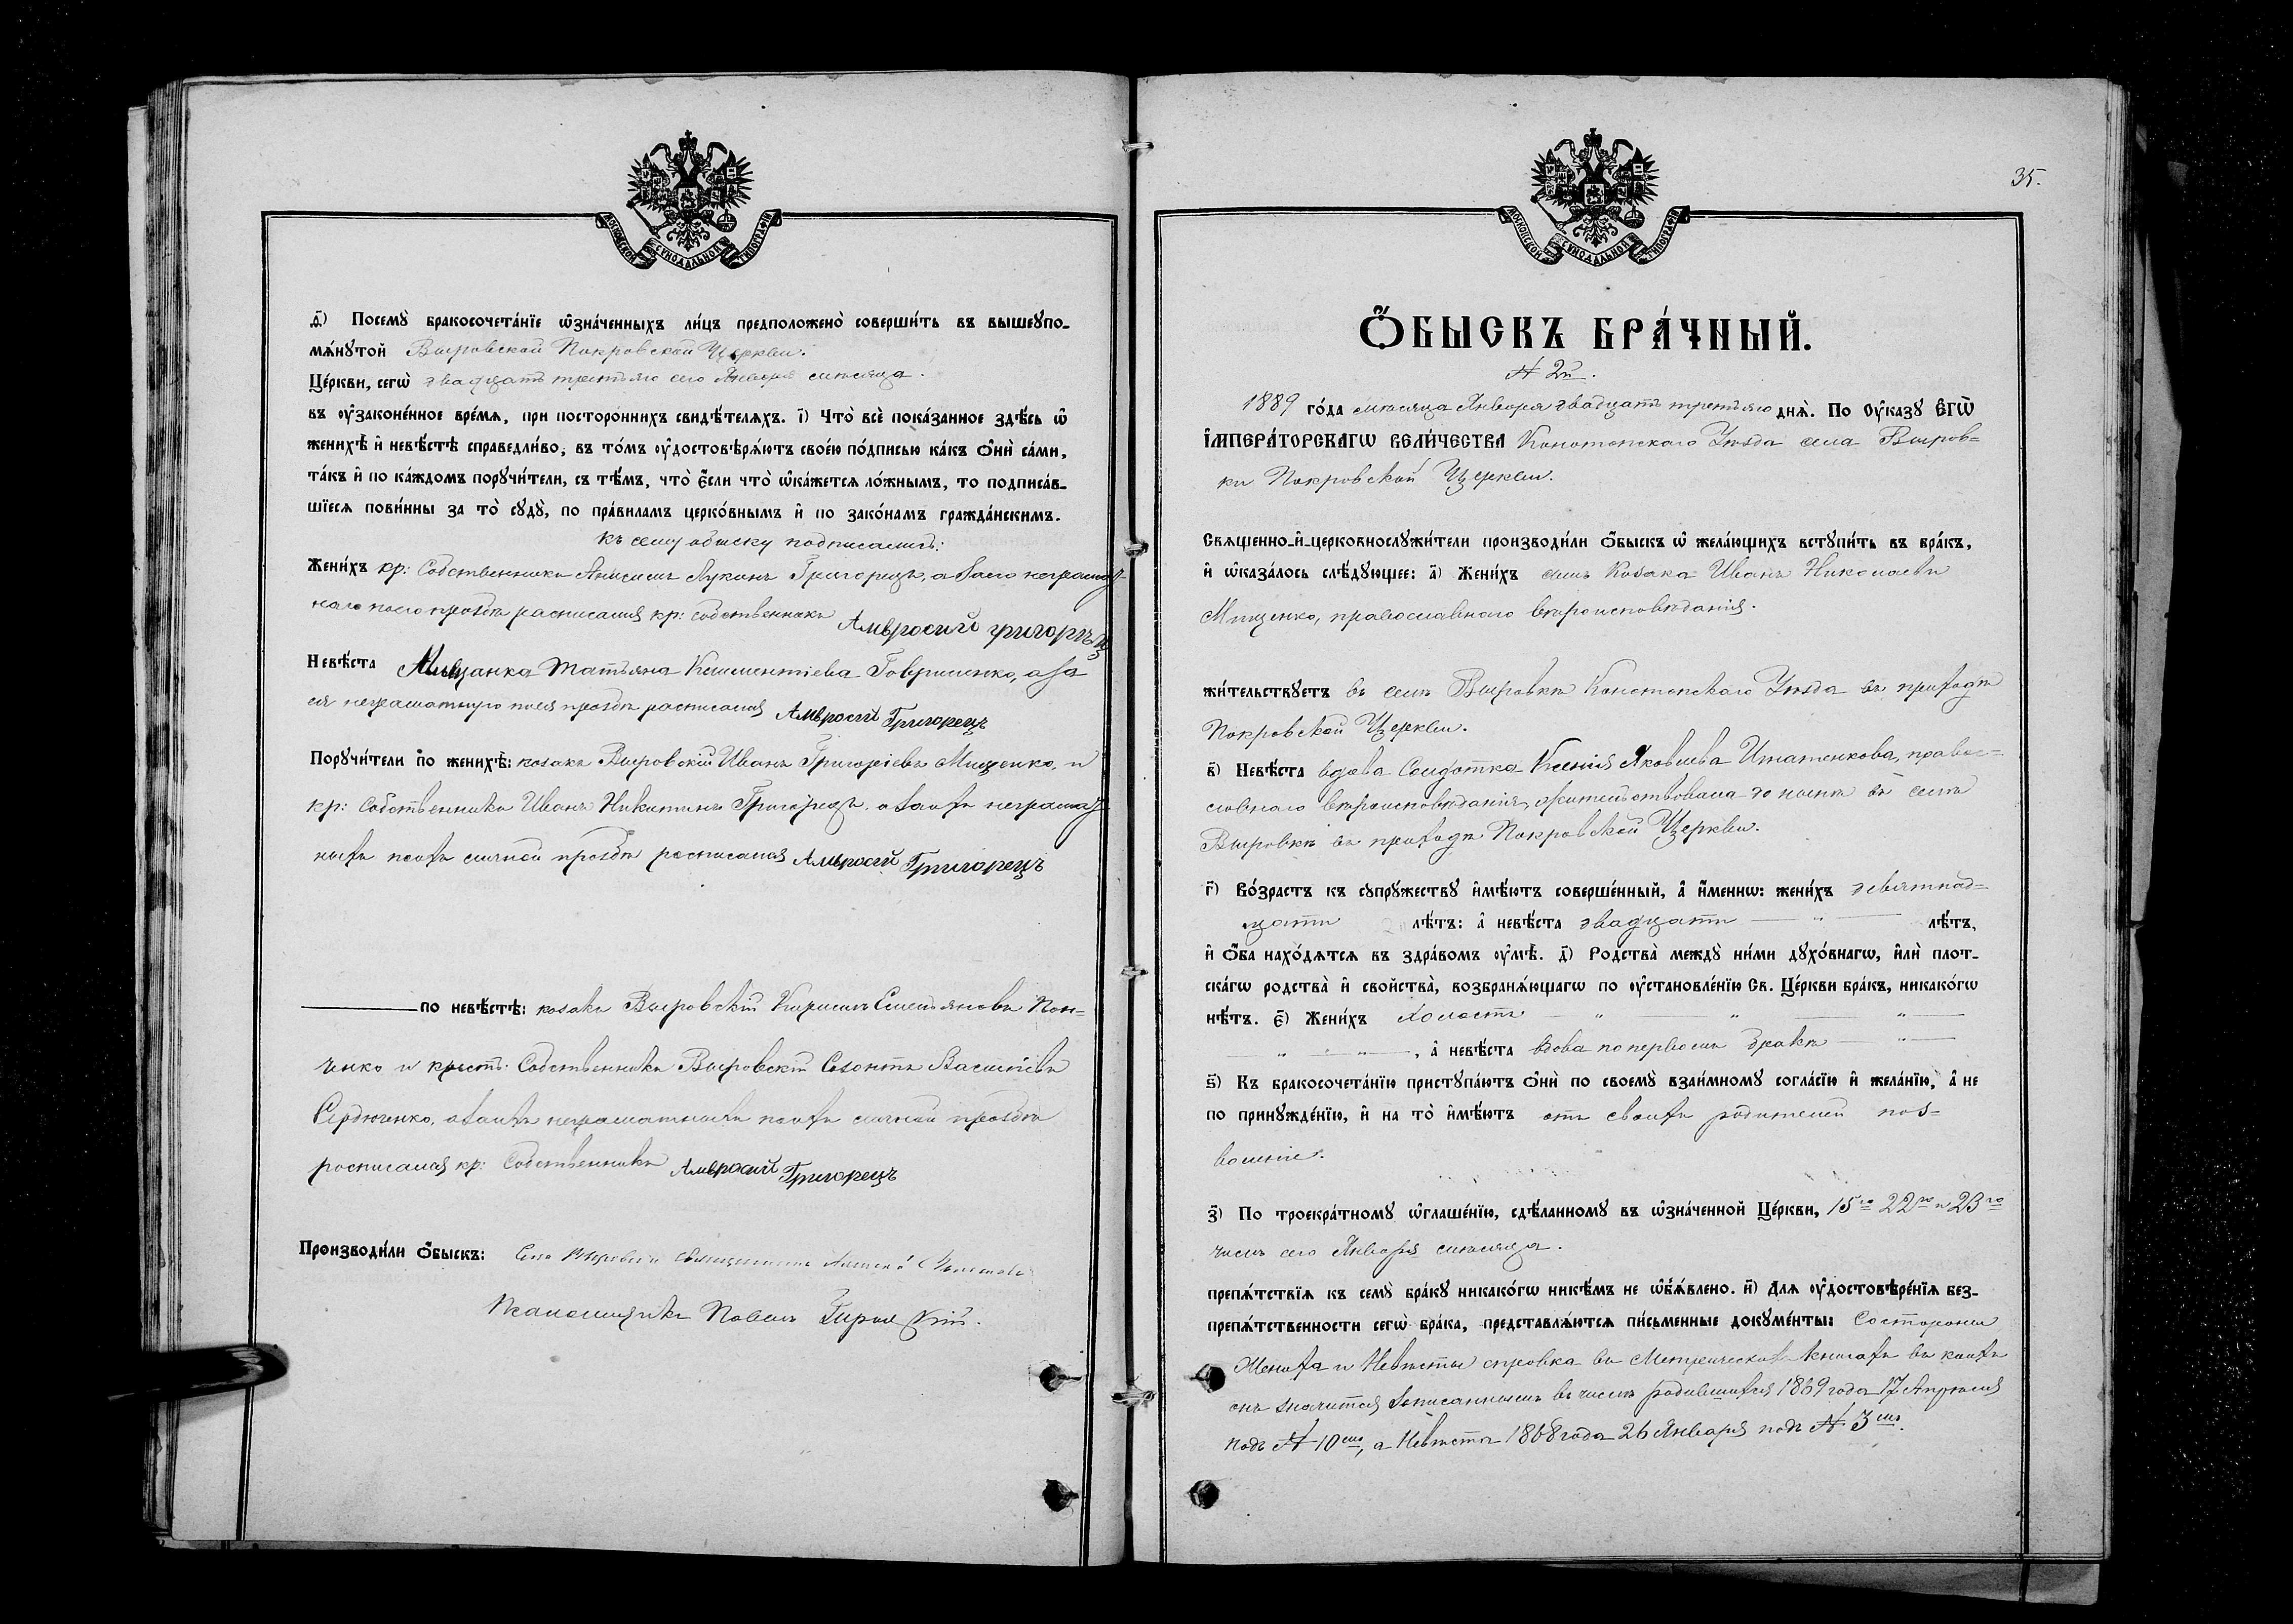 МОСКОВСКОЙ СѴНОДАЛЬНОЙ ТИПОГРАФІИ
д҃) Посемꙋ̀ бракосочета́нїе ѡ҆зна́ченныхъ ли́цъ предположено̀ соверши́ть въ вышеꙋпо-
мѧ́нꙋтой Выровской Покровской Церкви.
Це́ркви, сегѡ̀ двадцать третьяго сего Января месяца.
въ ᲂу҆законе́нное вре́мѧ, при посторо́ннихъ свидѣ́телѧхъ. і҃) Что̀ всѐ пока́занное здѣ́сь ѡ҆
женихѣ̀ и҆ невѣ́стѣ справедли́во, въ то́мъ ᲂу҆достовѣрѧ́ютъ свое́ю по́дписью ка́къ ѻ҆нѝ са́ми,
та́къ и҆ по ка́ждомъ порꙋчи́тели, съ тѣ́мъ, что̀ є҆́сли что̀ ѡ҆ка́жетсѧ ло́жнымъ, то подписа́в-
шїесѧ пови́нны за то̀ сꙋдꙋ̀, по пра́виламъ церко́внымъ и҆ по зако́намъ гражда́нскимъ.
къ сему обыску подписались:
Жени́хъ кр: Собственникъ Анисимъ Лукинъ Григорецъ, а за его неграмот-
наго по его прозбѣ расписался кр: собственникъ Амвросий григорецъ
Невѣ́ста Мещанка Татьяна Климентіева Гавриленко, а за
ея неграматную по ея прозбѣ расписался Амвросий Григорецъ
Порꙋчи́тели по женихѣ̀: козакъ Выровскій Иванъ Григоріевъ Мищенко, и
кр: Собственникъ Иванъ Никитинъ Григорецъ, а за ихъ неграмат-
ныхъ по ихъ личной прозбѣ росписался Амвросий Григорецъ
по невѣ́стѣ: козакъ Выровскій Кирилъ Емельяновъ Пан-
ченко и крест: Собственникъ Выровскій Созонтъ Василіевъ
Сердюченко, а за ихъ неграматныхъ по ихъ личной прозбѣ
росписался кр: Собственникъ Амвросий Григорецъ
Производи́ли ѻ҆́быскъ: Села Выровки священникъ
Псаломщикъ Павелъ
35.
МОСКОВСКОЙ СѴНОДАЛЬНОЙ ТИПОГРАФІИ
Ѻ҆́БЫСКЪ БРА́ЧНЫЙ.
№ 2й.
1889 го́да месяца Января двадцать третьяго днѧ̀. По ᲂу҆ка́зꙋ Є҆ГѠ̀
І҆МПЕРА́ТОРСКАГѠ ВЕЛИ́ЧЕСТВА Конотопскаго Уезда села Выров-
ки Покровской Церкви.
Свѧщенно-и҆-церковнослꙋжи́тели производи́ли ѻ҆́быскъ ѡ҆ жела́ющихъ встꙋпи́ть въ бра́къ,
и҆ ѡ҆каза́лось слѣ́дꙋющее: а҃) Жени́хъ сынъ Козака Иванъ Николаевъ
Мищенко, православнаго вероисповѣданія.
жи́тельствꙋетъ въ селѣ Выровкѣ Конотопскаго Уезда въ приходѣ
Покровской Церкви.
в҃) Невѣ́ста вдова Солдатка Ксенія Яковлева Игнатенкова, право-
славнаго вероисповѣданія, жительствовала до нынѣ въ селѣ
Выровкѣ въ приходѣ Покровской Церкви.
г҃) Во́зрастъ къ сꙋпрꙋ́жествꙋ и҆мѣ́ютъ соверше́нный, а҆ и҆́меннѡ: жени́хъ девятнад-
цати лѣ́тъ: а҆ невѣ́ста двадцати — " — лѣ́тъ,
и҆ ѻ҆́ба нахо́дѧтсѧ въ здра́вомъ ᲂу҆мѣ̀. д҃) Родства̀ междꙋ̀ ни́ми дꙋхо́внагѡ, и҆лѝ плот-
ска́гѡ родства̀ и҆ сво́йства̀, возбранѧ́ющагѡ по ᲂу҆становле́нїю Св. Це́ркви бра́къ, никако́гѡ
нѣ́тъ. є҃) Жени́хъ холостъ — " — " — " —
" — " —, а҆ невѣ́ста вдова по первомъ бракѣ — " —
ѕ҃) Къ бракосочета́нїю пристꙋпа́ютъ ѻ҆нѝ по своемꙋ̀ взаи́мномꙋ согла́сїю и҆ жела́нїю, а҆ не
по принꙋжде́нїю, и҆ на то̀ и҆мѣ́ютъ отъ своихъ родителей поз-
воленіе.
з҃) По троекра́тномꙋ ѡ҆глаше́нїю, сдѣ́ланномꙋ въ ѡ҆зна́ченной Це́ркви, 15го 22го и 23го
числъ сего Января месяца.
препѧ́тствїѧ къ семꙋ̀ бра́кꙋ никако́гѡ никѣ́мъ не ѡ҆б̾ѧ́влено. и҃) Длѧ ᲂу҆достовѣре́нїѧ без-
препѧ́тственности сегѡ̀ бра́ка, представлѧ́ютсѧ пи́сьменные докꙋме́нты: Состороны
Жениха и Невѣсты справка въ Метрическихъ книгахъ въ коихъ
онъ значится записаннымъ въ числѣ родившихся 1869 года 17 Апрѣля
подъ № 10мъ, а Невѣста 1868 года 26 Января подъ № 3мъ.